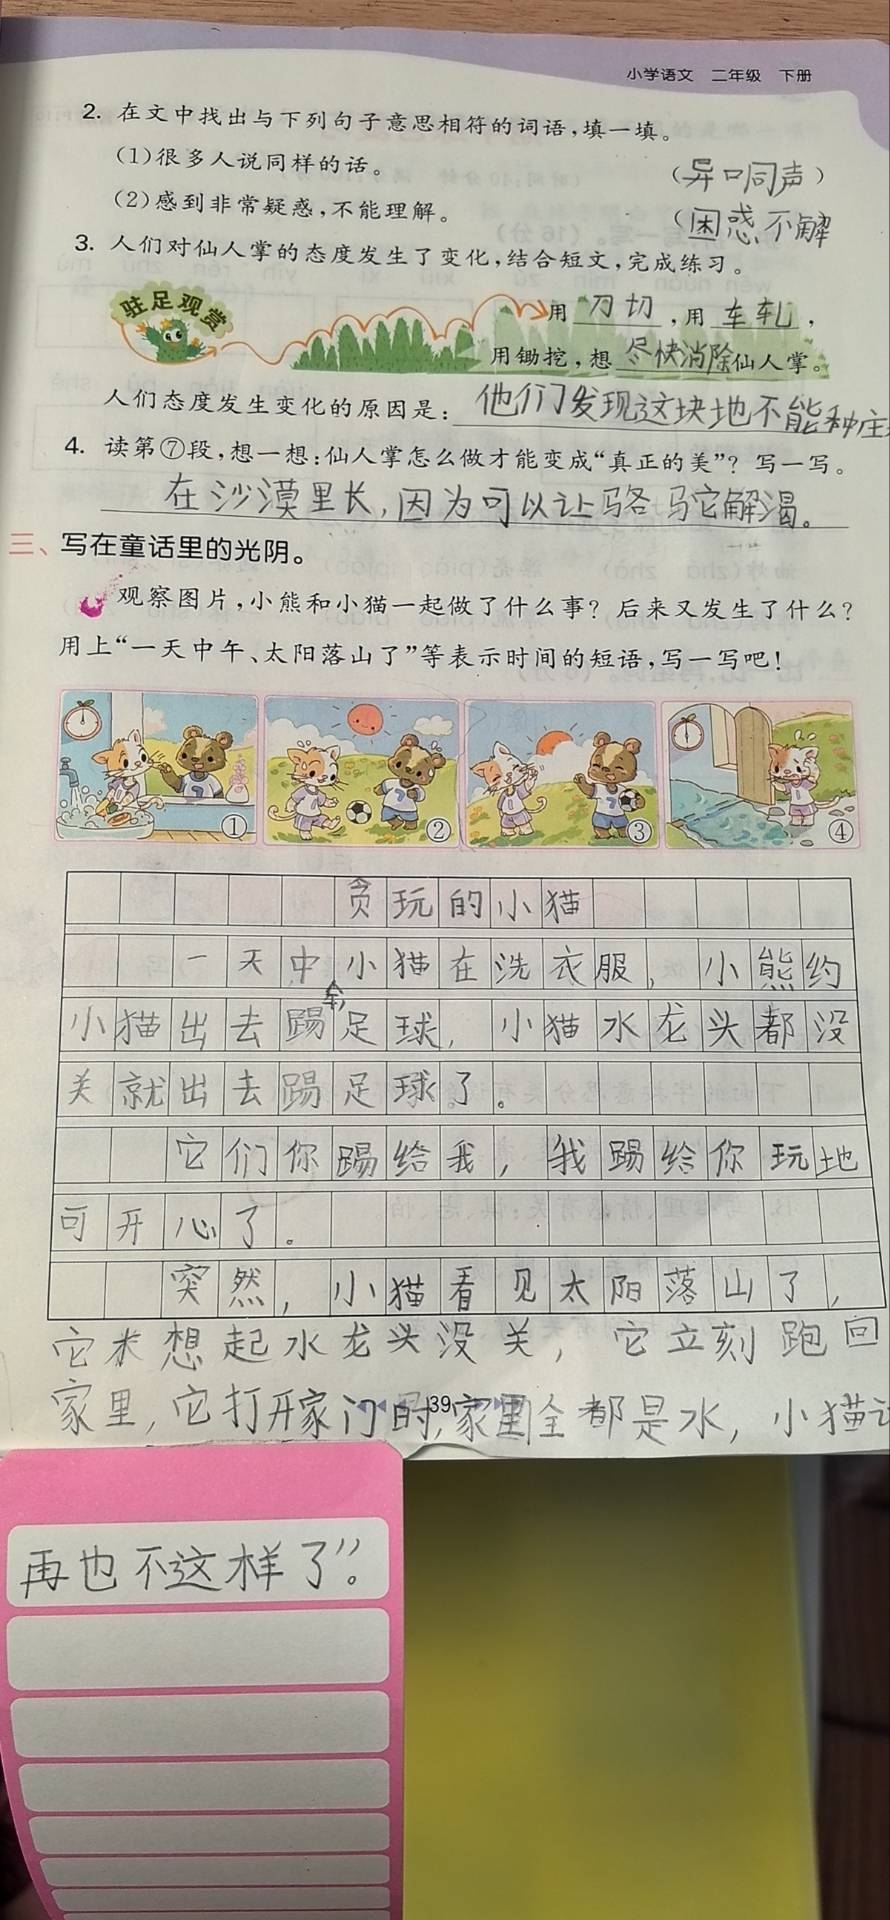 小学语文 二年级 下册
2. 在文中找出与下列句子意思相符的词语,填一填。
(1)很多人说同样的话。 (异口同声)
(2)感到非常疑惑,不能理解。 (困惑不解
3. 人们对仙人掌的态度发生了变化,结合短文,完成练习。
驻足观赏
用刀切,用车轧,
用锄挖,想尽快消除仙人掌。
人们态度发生变化的原因是:他们发现这块地不能种庄
4. 读第⑦段,想一想:仙人掌怎么做才能变成“真正的美”?写一写。
在沙漠里长,因为可以让骆马它解渴。
三、写在童话里的光阴。
观察图片,小熊和小猫一起做了什么事?后来又发生了什么?
用上“一天中午、太阳落山了”等表示时间的短语,写一写吧!
① ② ③ ④
贪玩的小猫
一天中午小猫在洗衣服,小熊约
小猫出去踢足球,小猫水龙头都没
关就出去踢足球了。
它们你踢给我,我踢给你玩地
可开心了。
突然,小猫看见太阳落山了,
它才想起水龙头没关,它立刻跑回
家里,它打开家门时,家里全都是水,小猫
39
再也不这样了”。